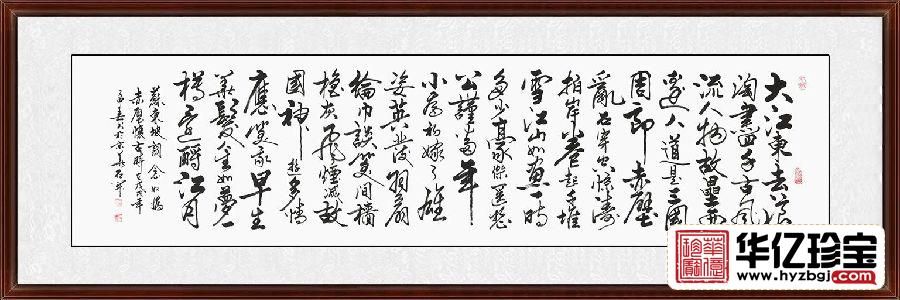 大江東去浪
淘盡千古風
流人物故壘西
邊人道是三國
周郎赤壁
亂石穿空驚濤
拍岸卷起千堆
雪江山如畫一時
多少豪傑遥想
公謹當年
小喬初嫁了雄
姿英發羽扇
綸巾談笑間檣
櫓灰飛煙滅故
國神遊多情
應笑我早生
華髮人生如夢一
樽還酹江月
蘇東坡詞念奴嬌
赤壁懷古時在戊戌年
華億珍寶
华亿珍宝
www.hyzbgj.com